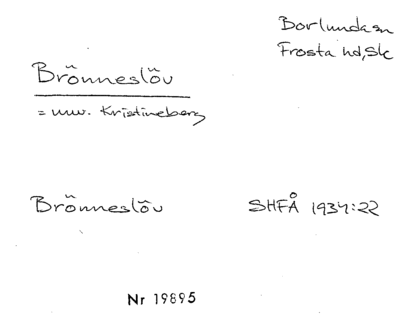 Borlunda sn
Frosta hd, Sk
Brönneslöv
= nuv. Kristineberg
Brönneslöv
SHFÅ 1934:22
Nr 19895